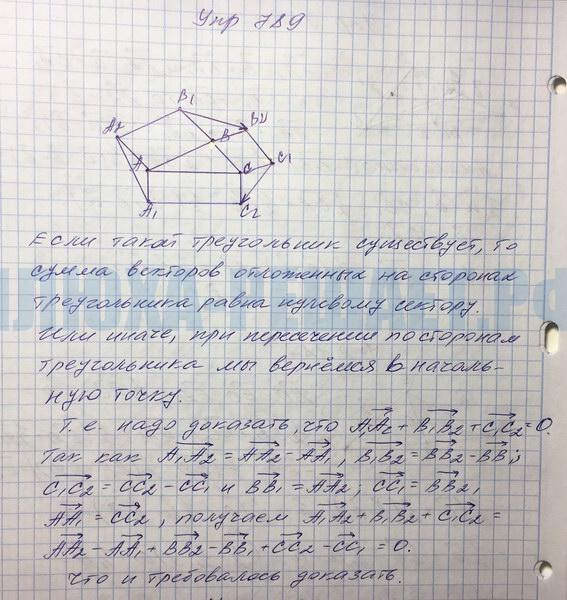 Упр 789
B₁
A₂
B
B₂
A
C
C₁
A₁
C₂
Если такой треугольник существует, то
сумма векторов отложенных на сторонах
треугольника равна нулевому сектору.
Или иначе, при пересечении по сторонам
треугольника мы вернёмся в началь-
ную точку.
Т. е. надо доказать, что A₁A₂ + B₁B₂ + C₁C₂ = 0.
Так как A₁A₂ = AA₂ - AA₁, B₁B₂ = BB₂ - BB₁;
C₁C₂ = CC₂ - CC₁ и BB₁ = AA₂; CC₁ = BB₂,
AA₁ = CC₂, получаем A₁A₂ + B₁B₂ + C₁C₂ =
AA₂ - AA₁ + BB₂ - BB₁ + CC₂ - CC₁ = 0.
Что и требовалось доказать.